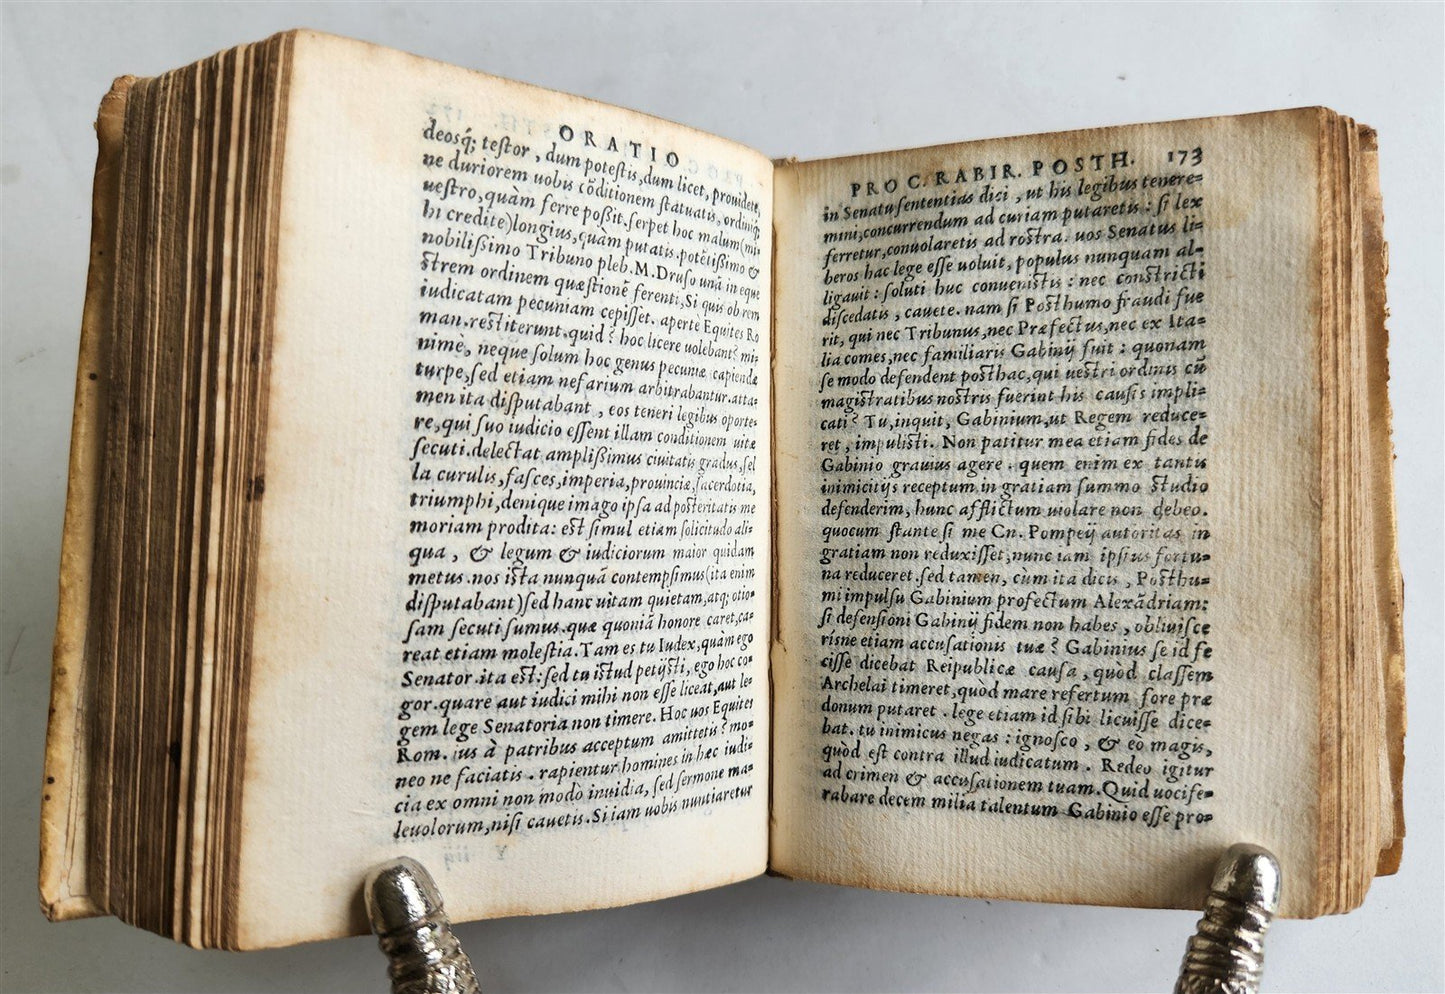 ORATIO
deosq́; teſtor, dum poteſtis, dum licet, prouidete,
ne duriorem uobis cõditionem ſtatuatis, ordiniq́;
ueſtro, quàm ferre poßit. ſerpet hoc malum (mi-
hi credite) longius, quàm putatis. potẽtißimo &
nobilißimo Tribuno pleb. M. Druſo unã in eque
ſtrem ordinem quæſtionẽ ferenti, Si quis ob rem
iudicatam pecuniam cepiſſet. apertè Equites Ro
man. reſtiterunt. quid? hoc licere uolebant? mi-
nime, neque ſolum hoc genus pecuniæ capiendæ
turpe, ſed etiam nefarium arbitrabantur. atta-
men ita diſputabant, eos teneri legibus oporte-
re, qui ſuo iudicio eſſent illam conditionem uitæ
ſecuti. delectat amplißimus ciuitatis gradus, ſel
la curulis, faſces, imperia, prouinciæ, ſacerdotia,
triumphi, denique imago ipſa ad poſteritatis me
moriam prodita: eſt ſimul etiam ſolicitudo ali-
qua, & legum & iudiciorum maior quidam
metus. nos iſta nunquã contempſimus (ita enim
diſputabant) ſed hanc uitam quietam, atq; otio-
ſam ſecuti ſumus. quæ quoniã honore caret, ca-
reat etiam moleſtia. Tam es tu Iudex, quàm ego
Senator. ita eſt: ſed tu iſtud petijſti, ego hoc co-
gor. quare aut iudici mihi non eſſe liceat, aut le-
gem lege Senatoria non timere. Hoc uos Equites
Rom. ius à patribus acceptum amittetis? mo-
neo ne faciatis. rapientur homines in hæc iudi-
cia ex omni non modò inuidia, ſed ſermone ma-
leuolorum, niſi cauetis. Si iam uobis nuntiaretur
PRO C. RABIR. POSTH. 173
in Senatu ſententias dici, ut his legibus tenere-
mini, concurrendum ad curiam putaretis: ſi lex
ferretur, conuolaretis ad roſtra. uos Senatus li-
beros hac lege eſſe uoluit, populus nunquam al-
ligauit: ſoluti huc conueniſtis: nec conſtricti
diſcedatis, cauete. nam ſi Poſthumo fraudi fue
rit, qui nec Tribunus, nec Præfectus, nec ex Ita-
lia comes, nec familiaris Gabinij fuit: quonam
ſe modo defendent poſthac, qui ueſtri ordinis cũ
magiſtratibus noſtris fuerint his cauſis impli-
cati? Tu, inquit, Gabinium, ut Regem reduce-
ret, impuliſti. Non patitur mea etiam fides de
Gabinio grauius agere. quem enim ex tantis
inimicitijs receptum in gratiam ſummo ſtudio
defenderim, hunc afflictum uiolare non debeo.
quocum ſtante ſi me Cn. Pompeij autoritas in
gratiam non reduxiſſet, nunc iam ipſius fortu-
na reduceret. ſed tamen, cùm ita dicis, Poſthu-
mi impulſu Gabinium profectum Alexãdriam:
ſi defenſioni Gabinij fidem non habes, obliuiſce
riſne etiam accuſationis tuæ? Gabinius ſe id fe
ciſſe dicebat Reipublicæ cauſa, quòd claſſem
Archelai timeret, quod mare refertum fore præ
donum putaret. lege etiam id ſibi licuiſſe dice-
bat. tu inimicus negas: ignoſco, & eò magis,
quòd eſt contra illud iudicatum. Redeo igitur
ad crimen & accuſationem tuam. Quid uocife-
rabare decem milia talentum Gabinio eſſe pro-